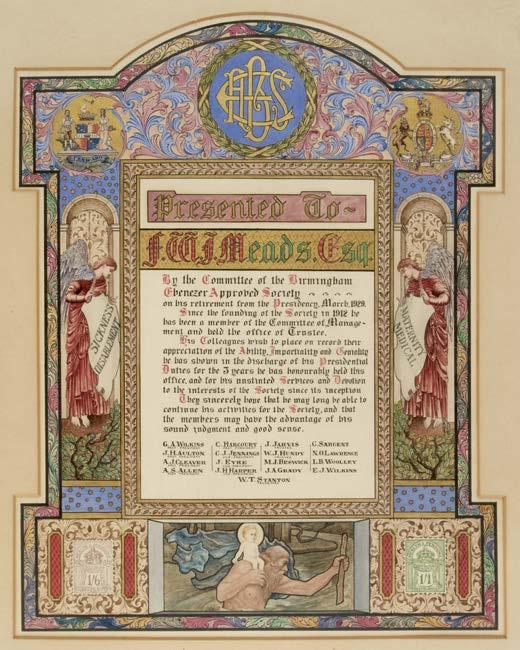 FORWARD
Presented To~
F.W.J. Meads. Esq.
By the Committee of the Birmingham
Ebenezer Approved Society ~ ~ ~ ~
on his retirement from the Presidency, March, 1929.
Since the founding of the Society in 1912 he
has been a member of the Committee of Manage-
ment and held the office of Trustee.
His Colleagues wish to place on record their
appreciation of the Ability, Impartiality and Geniality
he has shown in the discharge of his Presidential
Duties for the 3 years he has honourably held this
office, and for his unstinted Services and Devotion
to the interests of the Society since its inception
They sincerely hope that he may long be able to
continue his activities for the Society, and that
the members may have the advantage of his
sound judgment and good sense.
G.A. WILKINS C. HARCOURT J. JARVIS C. SARGENT
J.H. AULTON C.J. JENNINGS W.J. HUNDY N.O. LAWRENCE
A.J. CLEAVER J. EYRE M.J. BESWICK L.B. WOOLLEY
A.S. ALLEN J.H. HARPER J.A. GRADY E.J. WILKINS
W.T. STANTON
SICKNESS
DISABLEMENT
MATERNITY
MEDICAL
1/6
1/1